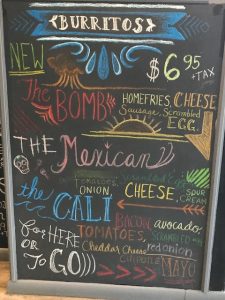 BURRITOS
NEW
$6.95
+TAX
The BOMB
HOMEFRIES, CHEESE
Sausage, Scrambled
EGG.
THE Mexican
TOMATOES,
ONION,
CHEESE,
SOUR
CREAM
the CALI
BACON
avocado,
TOMATOES,
SCRAMBLED
Cheddar Cheese
red onion
CHIPOTLE
MAYO
for HERE
OR
To GO)))